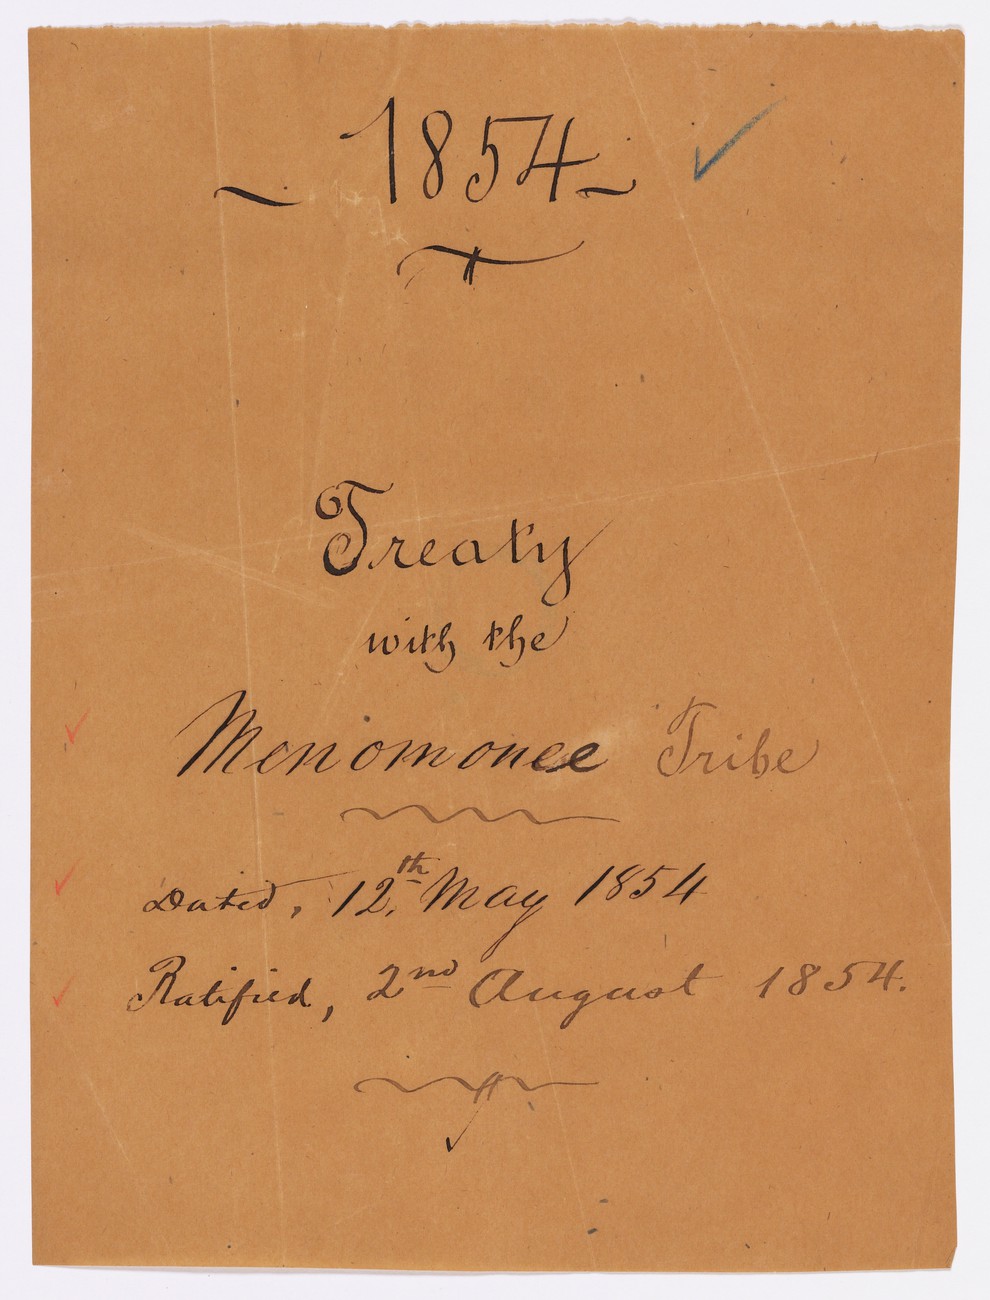 ~ 1854 ~
Treaty
with the
Menomonee Tribe
Dated, 12th. May 1854
Ratified, 2nd August 1854.